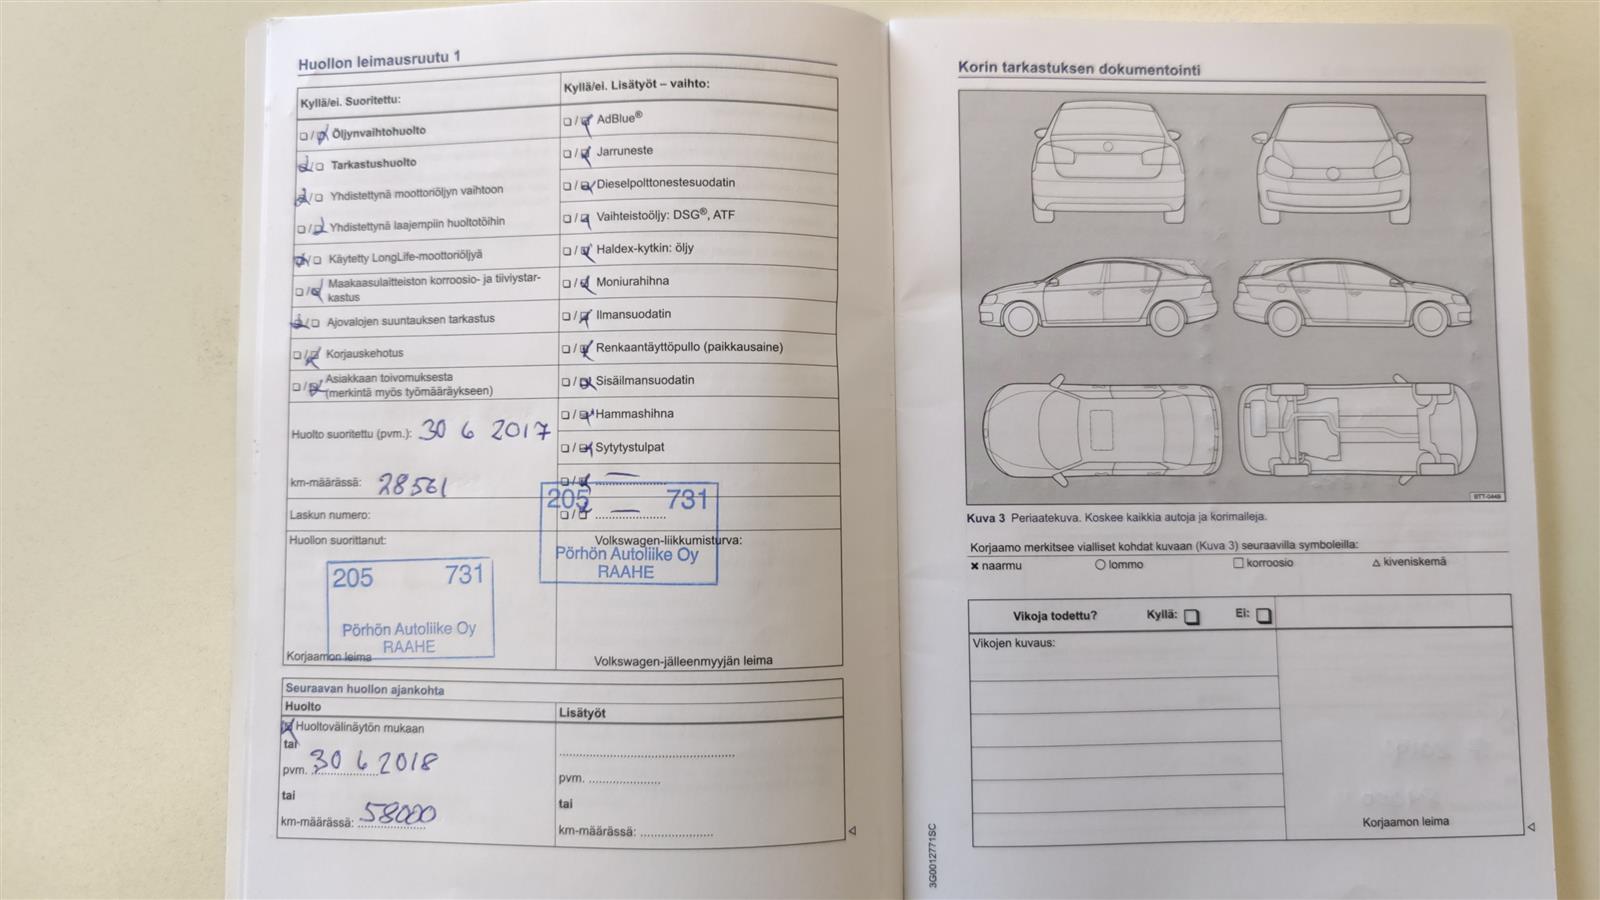 Huollon leimausruutu 1
Kyllä/ei. Suoritettu:
Öljynvaihtohuolto
Tarkastushuolto
Yhdistettynä moottoriöljyn vaihtoon
Yhdistettynä laajempiin huoltotöihin
Käytetty LongLife-moottoriöljyä
Maakaasulaitteiston korroosio- ja tiiviystar-
kastus
Ajovalojen suuntauksen tarkastus
Korjauskehotus
Asiakkaan toivomuksesta
(merkintä myös työmääräykseen)
Huolto suoritettu (pvm.): 30 6 2017
km-määrässä: 28561
Laskun numero:
Huollon suorittanut:
205 731
Pörhön Autoliike Oy
RAAHE
Korjaamon leima
Kyllä/ei. Lisätyöt – vaihto:
AdBlue®
Jarruneste
Dieselpolttonestesuodatin
Vaihteistoöljy: DSG®, ATF
Haldex-kytkin: öljy
Moniurahihna
Ilmansuodatin
Renkaantäyttöpullo (paikkausaine)
Sisäilmansuodatin
Hammashihna
Sytytystulpat
205 731
Volkswagen-liikkumisturva:
Pörhön Autoliike Oy
RAAHE
Volkswagen-jälleenmyyjän leima
Seuraavan huollon ajankohta
Huolto
Huoltovälinäytön mukaan
tai
pvm. 30 6 2018
tai
km-määrässä: 58000
Lisätyöt
pvm.
tai
km-määrässä:
Korin tarkastuksen dokumentointi
BTT-0449
Kuva 3 Periaatekuva. Koskee kaikkia autoja ja korimalleja.
Korjaamo merkitsee vialliset kohdat kuvaan (Kuva 3) seuraavilla symboleilla:
naarmu lommo korroosio kiveniskemä
Vikoja todettu? Kyllä: Ei:
Vikojen kuvaus:
Korjaamon leima
3G0012771SC